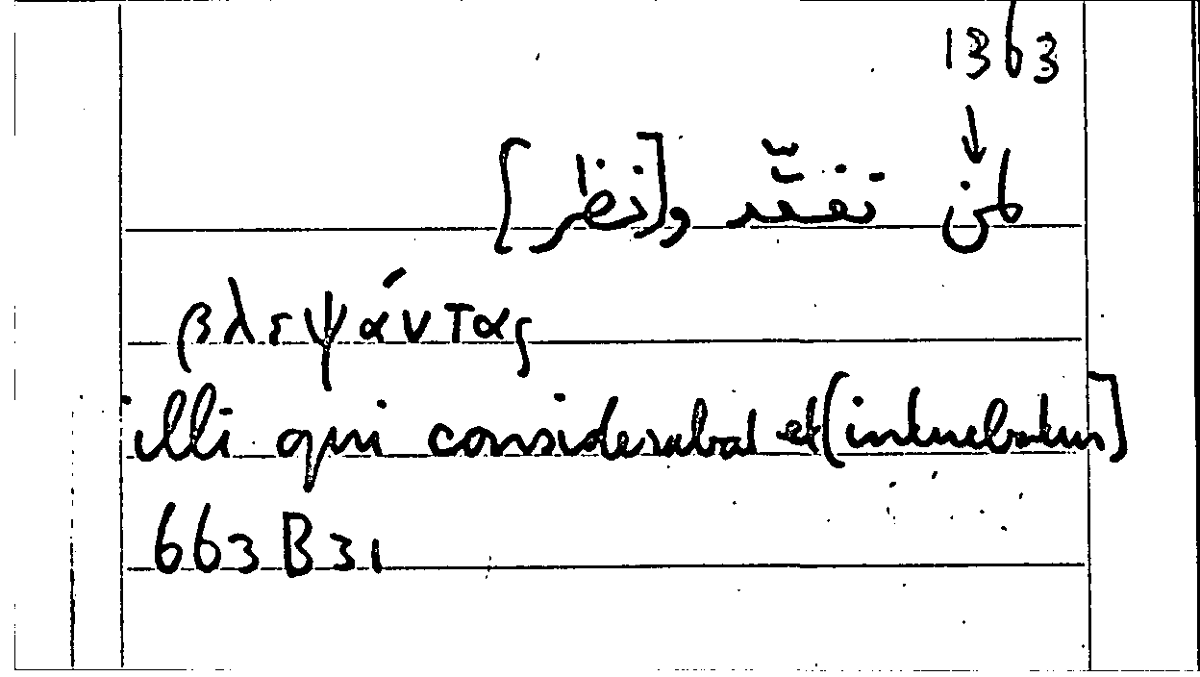 1363
↓
لمن تفقّد و[نظر]
βλεψάντας
illi qui considerabat et [intuebatur]
663B31